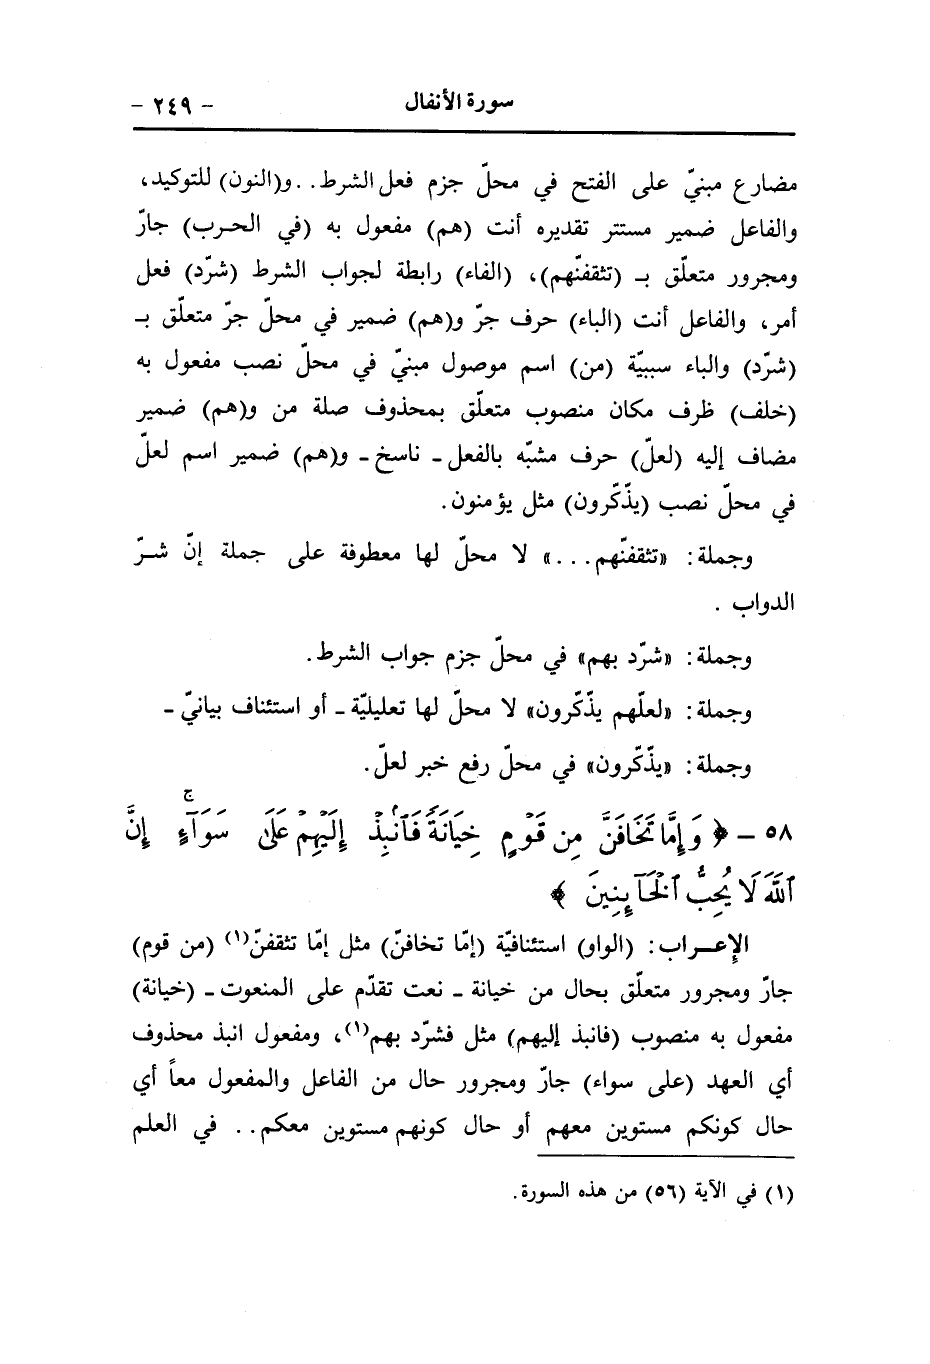 سورة الأنفال - ٢٤٩ -
مضارع مبنيّ على الفتح في محلّ جزم فعل الشرط. . و(النون) للتوكيد،
والفاعل ضمير مستتر تقديره أنت (هم) مفعول به (في الحرب) جارّ
ومجرور متعلّق بـ (تثقفنّهم)، (الفاء) رابطة لجواب الشرط (شرّد) فعل
أمر، والفاعل أنت (الباء) حرف جرّ و(هم) ضمير في محلّ جرّ متعلّق بـ
(شرّد) والباء سببيّة (من) اسم موصول مبنيّ في محلّ نصب مفعول به
(خلف) ظرف مكان منصوب متعلّق بمحذوف صلة من و(هم) ضمير
مضاف إليه (لعلّ) حرف مشبّه بالفعل ـ ناسخ ـ و(هم) ضمير اسم لعلّ
في محلّ نصب (يذّكّرون) مثل يؤمنون.
وجملة: «تثقفنّهم. . .» لا محلّ لها معطوفة على جملة إنّ شرّ
الدواب .
وجملة: «شرّد بهم» في محلّ جزم جواب الشرط.
وجملة: «لعلّهم يذّكّرون» لا محلّ لها تعليليّة ـ أو استئناف بيانيّ ـ
وجملة: «يذّكّرون» في محلّ رفع خبر لعلّ.
٥٨ - ﴿ وَإِمَّا تَخَافَنَّ مِن قَوْمٍ خِيَانَةً فَٱنۢبِذْ إِلَيْهِمْ عَلَىٰ سَوَآءٍ ۚ إِنَّ
ٱللَّهَ لَا يُحِبُّ ٱلْخَآئِنِينَ ﴾
الإعـراب: (الواو) استئنافيّة (إمّا تخافنّ) مثل إمّا تثقفنّ(١) (من قوم)
جارّ ومجرور متعلّق بحال من خيانة ـ نعت تقدّم على المنعوت ـ (خيانة)
مفعول به منصوب (فانبذ إليهم) مثل فشرّد بهم(١)، ومفعول انبذ محذوف
أي العهد (على سواء) جارّ ومجرور حال من الفاعل والمفعول معاً أي
حال كونكم مستوين معهم أو حال كونهم مستوين معكم. . في العلم
(١) في الآية (٥٦) من هذه السورة.